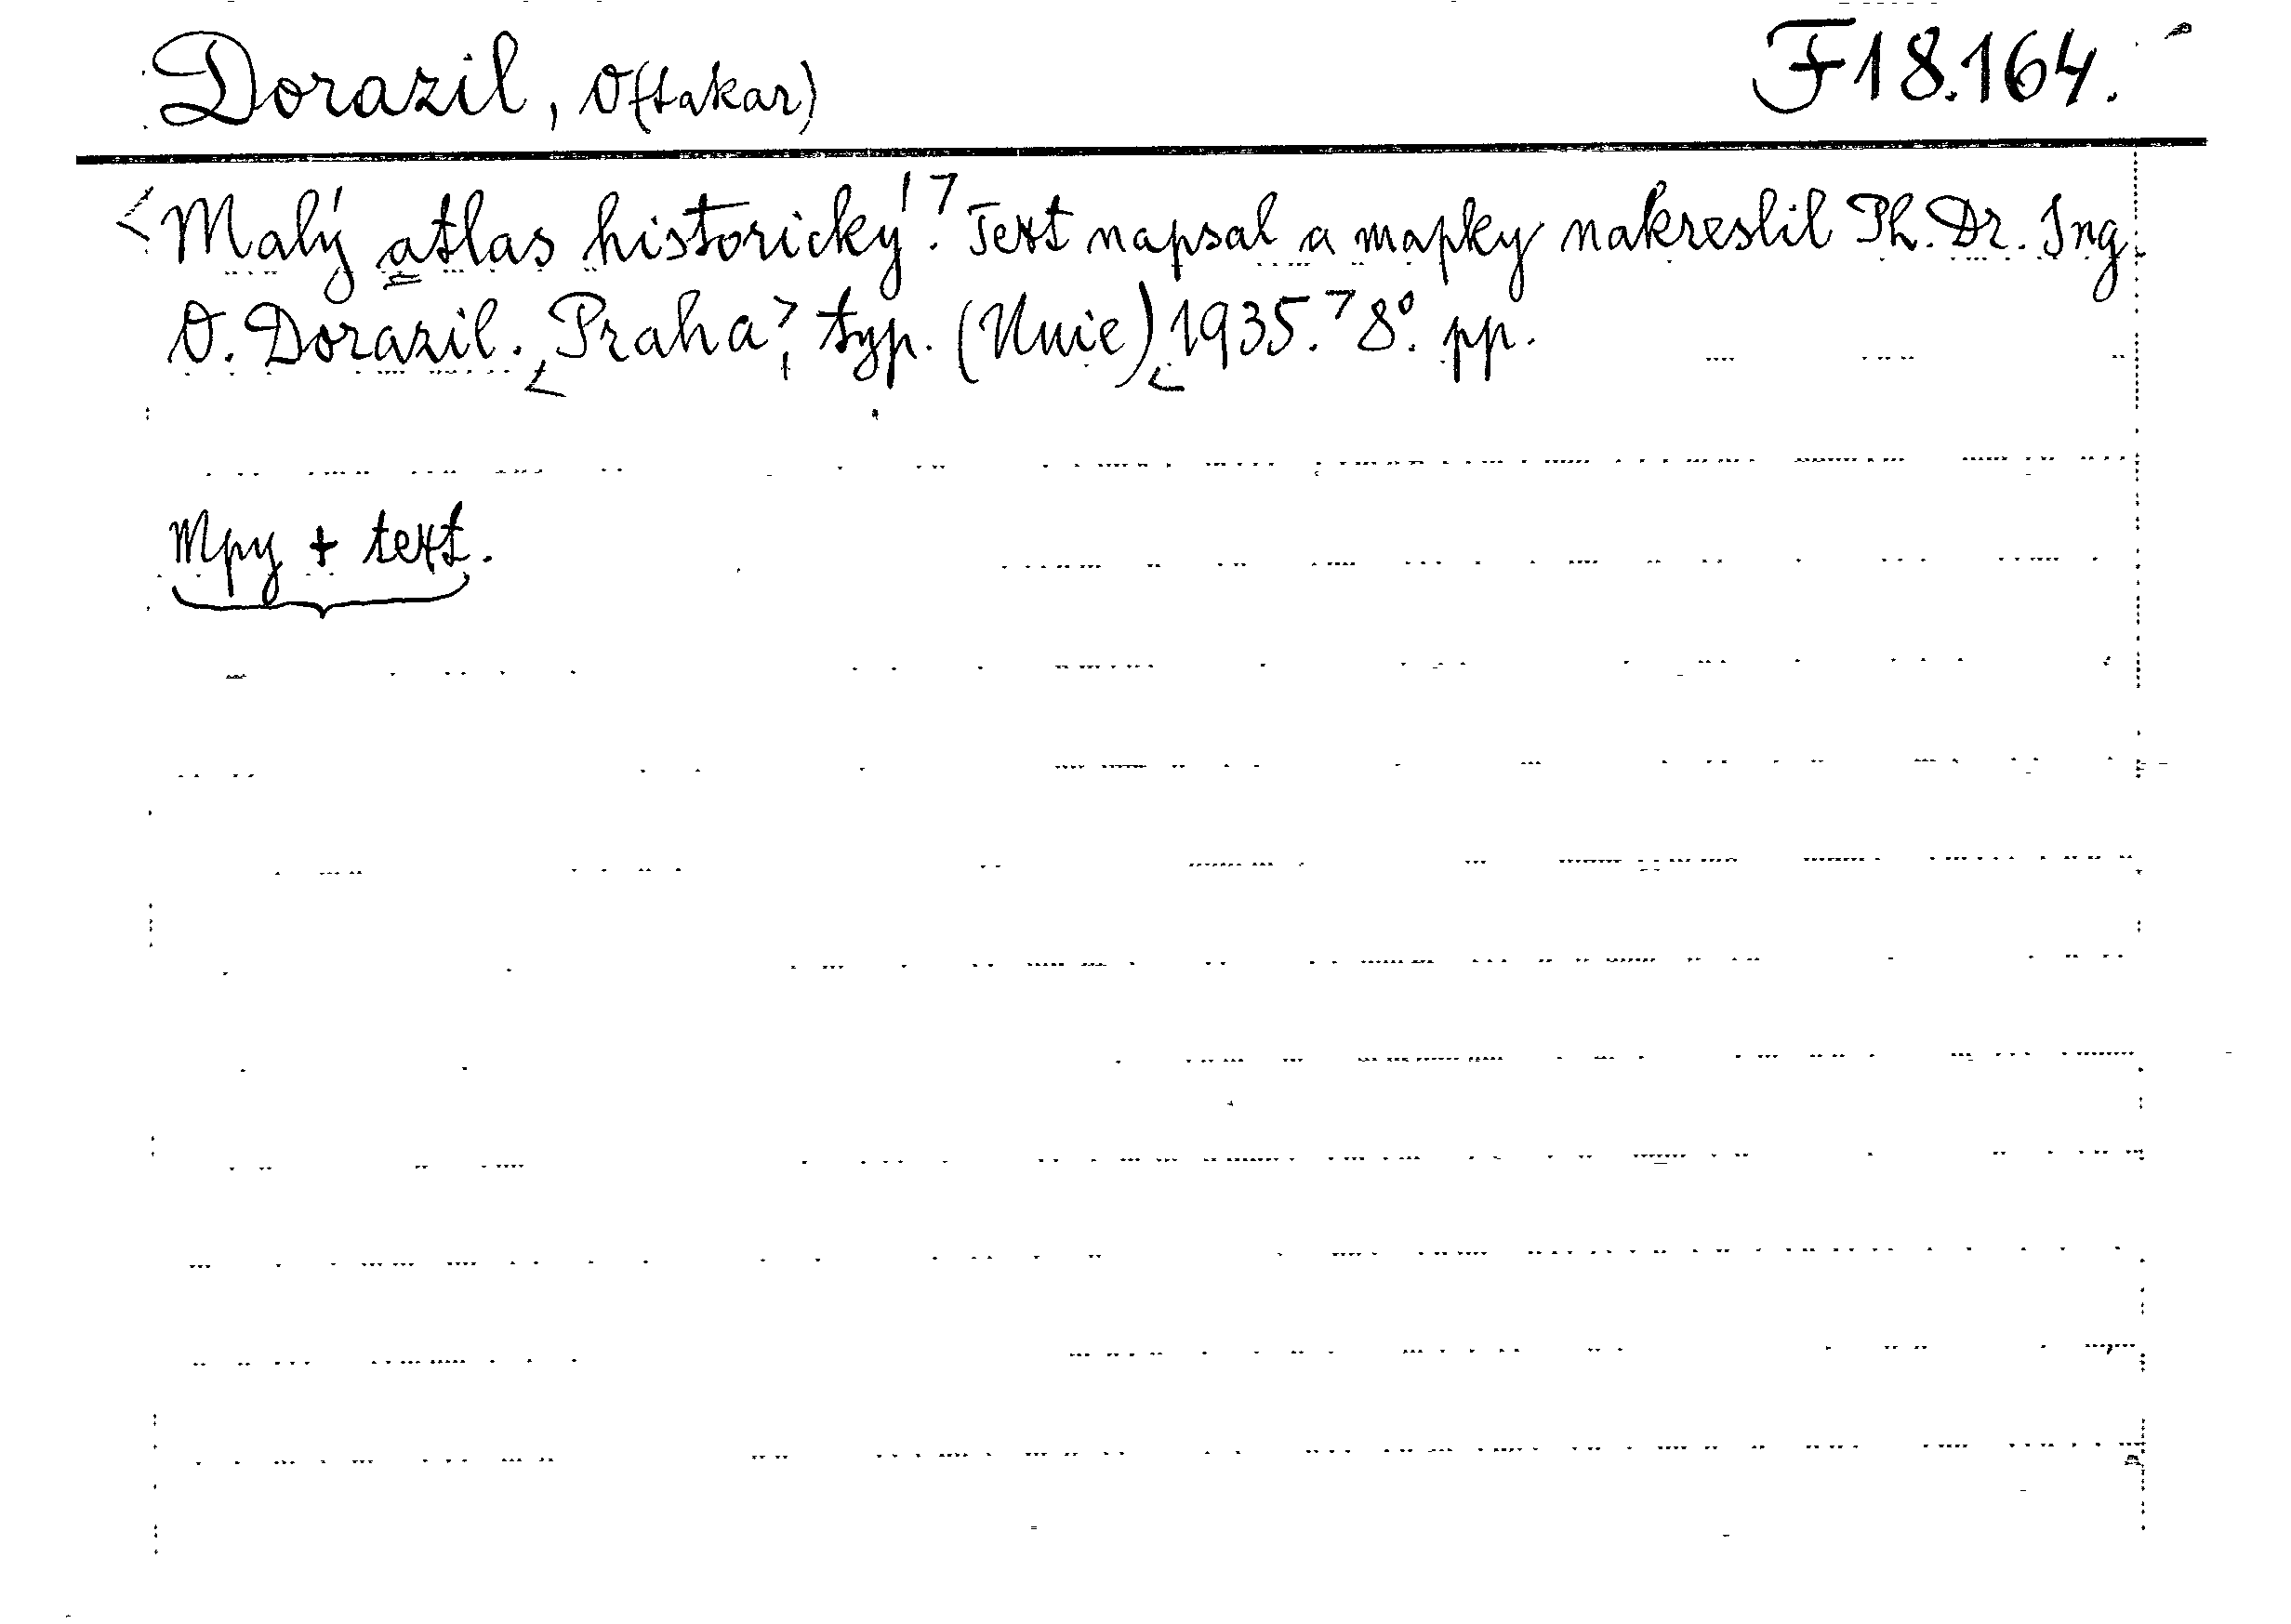 Dorazil, O(takar)
F18.164.
<Malý atlas historický.> Text napsal a mapky nakreslil Ph. Dr. Ing.
O. Dorazil. <Praha>, typ. (Unie) <1935.> 8°. pp.
Mpy + text.